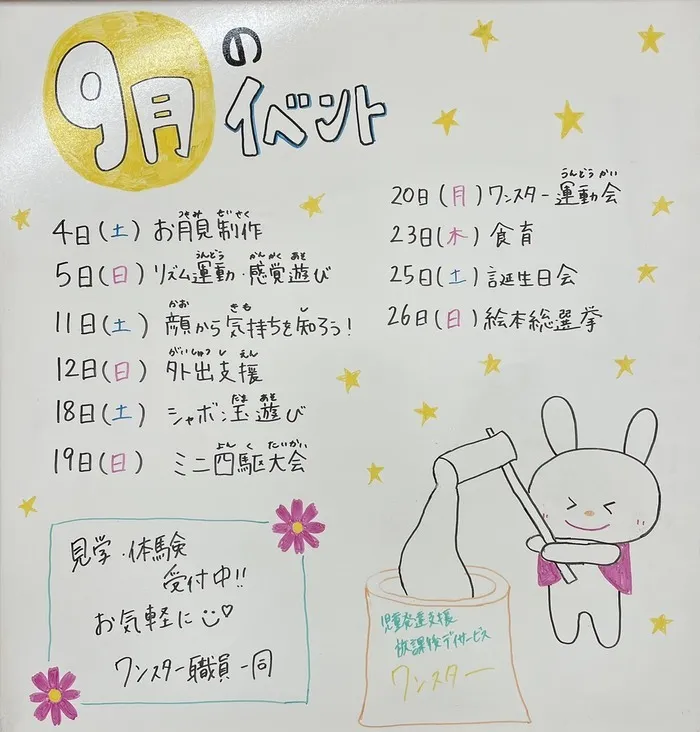 9月の
イベント
4日(土) お月見制作
5日(日) リズム運動・感覚遊び
11日(土) 顔から気持ちを知ろう!
12日(日) 外出支援
18日(土) シャボン玉遊び
19日(日) ミニ四駆大会
20日(月) ワンスター運動会
23日(木) 食育
25日(土) 誕生日会
26日(日) 絵本総選挙
見学・体験
受付中!!
お気軽に
ワンスター職員一同
児童発達支援
放課後デイサービス
ワンスター